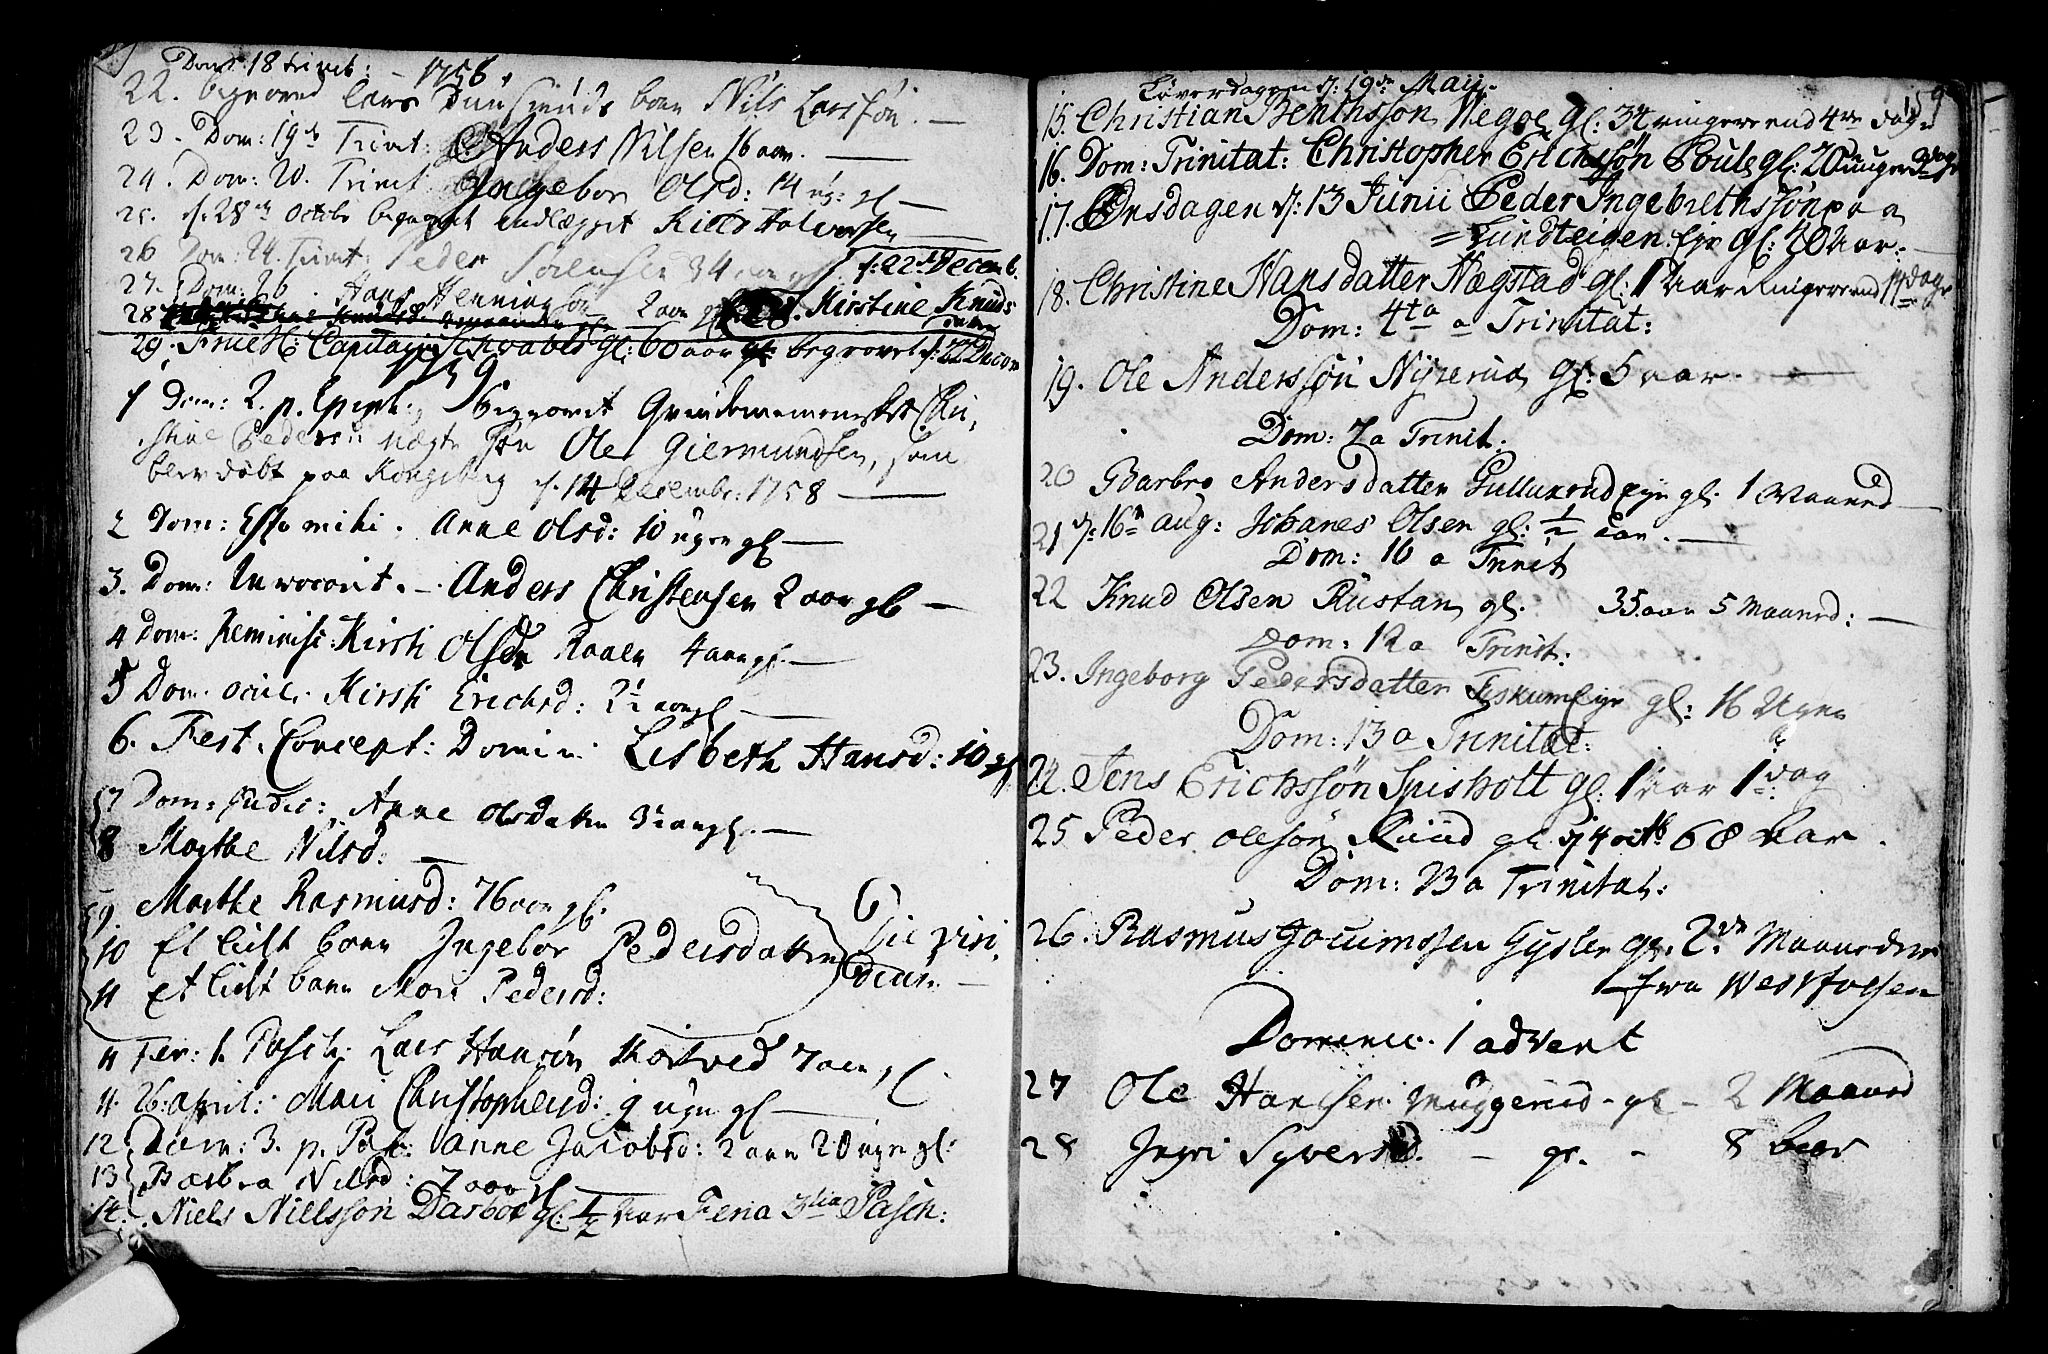 Dom: 18 trinit: - 1758.
22. begraved Lars Dunserud barn Nils Larssøn. —
23. Dom: 19de Trinit: Anders Nilsen 16 aar. —
24. Dom: 20. Trinit Ingebor Olsd: 14 ug: gl —
25. d: 28de Octobr begravet Halvorsen —
26 Dom: 24. Trinit: Peder Sørensen 34 aar gl d: 22de Decemb.
27. Dom: 26. Hans Henningsøn 2 aar gl 28. Kirstine Knuds
28 datter
29. Frue Sl: Capitain Schwabls gl: 60 aar begrovet d: 22 Decem
1759
1 Dom: 2. p. Epiph: begravet Qvindemennesket Chri,
stine Peders: uægte søn Ole Giermundsen, som
blev døbt paa Kongsberg d. 14 Decembr: 1758 —
2 Dom: Esto mihi. Anne Olsd: 10 uger gl —
3. Dom: Invocavit. - Anders Christensen 2 aar gl —
4 Dom: Reminisc: Kirsti Olsdr Raaen 4 aar gl. —
5 Dom. oculi. Kirsti Erichsd: 2½ aar gl —
6. Fest. Concept: Domini Lisbeth Hansd: 10 gl
7 Dom: Judic: Anne Olsdatter 3½ aar gl. —
8 Marthe Nilsd: —
9. Marthe Rasmusd: 76 aar gl.
10 Et lidt barn Ingebor Pedersdatter Die viri,
11 et lidt barn Mari Pedersd: dium. —
11 Fer: 1. Pasch: Lars Hansøn 7 aar,
11. 26. april: Mari Christophersd: 9 uger gl —
12 Dom: 3. p. Pasc: Anne Jacobsd: 2 aar 20 uger gl:
13 Barbra Nilsd: 7 aar gl
14. Niels Nielssøn Darboe gl: ½ Aar Feria 3tia Pasch:
Løverdagen d: 19de Maij. 159
15. Christian Benthsson Hegoe gl: 34 uuger end 4re dage
16. Dom: Trinitat: Christopher Erichssøn Pouls gl: 20 uuger 3 dage
17. Onsdagen d: 13 Junii Peder Ingebrethssøn paa
= Lundteigen. Eje gl: 70 Aar. —
18. Christine Hansdatter Hægstad gl: 1 Aar end 14 dage
Dom: 4ta a Trinitat:
19. Ole Anderssøn Nyrerud gl: 5 aar. —
Dom: 7 a Trinit.
20 Barbro Andersdatter Gulluxrud Eje gl. 1 Maaned —
21 d: 16de aug: Johanes Olsen gl: ½ aar. —
Dom: 10 a Trinit
22 Knud Olsen Rustan gl. 35 aar 5 Maaned: —
Dom: 12 a Trinit:
23. Ingeborg Pedersdatter Fiskum Eje gl: 16 Uger
Dom: 13 a Trinitat:
24. Jens Erichssøn Spisholt gl: 1 Aar 1 dag
25 Peder Olesøn Ruud gl d 4 octb 68 Aar.
Dom: 23 a Trinitat:
26. Rasmus Jocumssen Gysler gl. 2de Maaneder
fra Westfossen
Dominic. 1 advent
27 Ole Hansen Muggerud - gl - 2 Maaned
28 Ingri Syversd. - gl. - 8 Aar